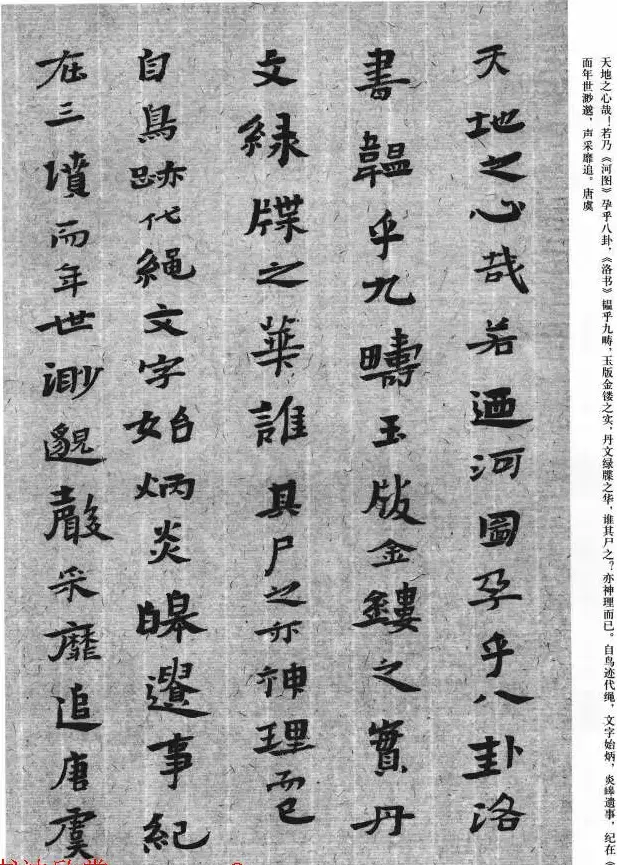 天地之心哉若迺河圖孕乎八卦洛
書韞乎九疇玉版金鏤之實丹
文綠牒之華誰其尸之亦神理而已
自鳥跡代繩文字始炳炎皞遺事紀
在三墳而年世渺邈聲采靡追唐虞
天地之心哉！若乃《河图》孕乎八卦，《洛书》韫乎九畴，玉版金镂之实，丹文绿牒之华，谁其尸之？亦神理而已。自鸟迹代绳，文字始炳，炎皞遗事，纪在《
而年世渺邈，声采靡追。唐虞